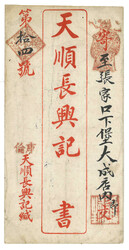 寄至張家口下堡大成店內
天順長興記 書
第拾四號
天順長興記緘